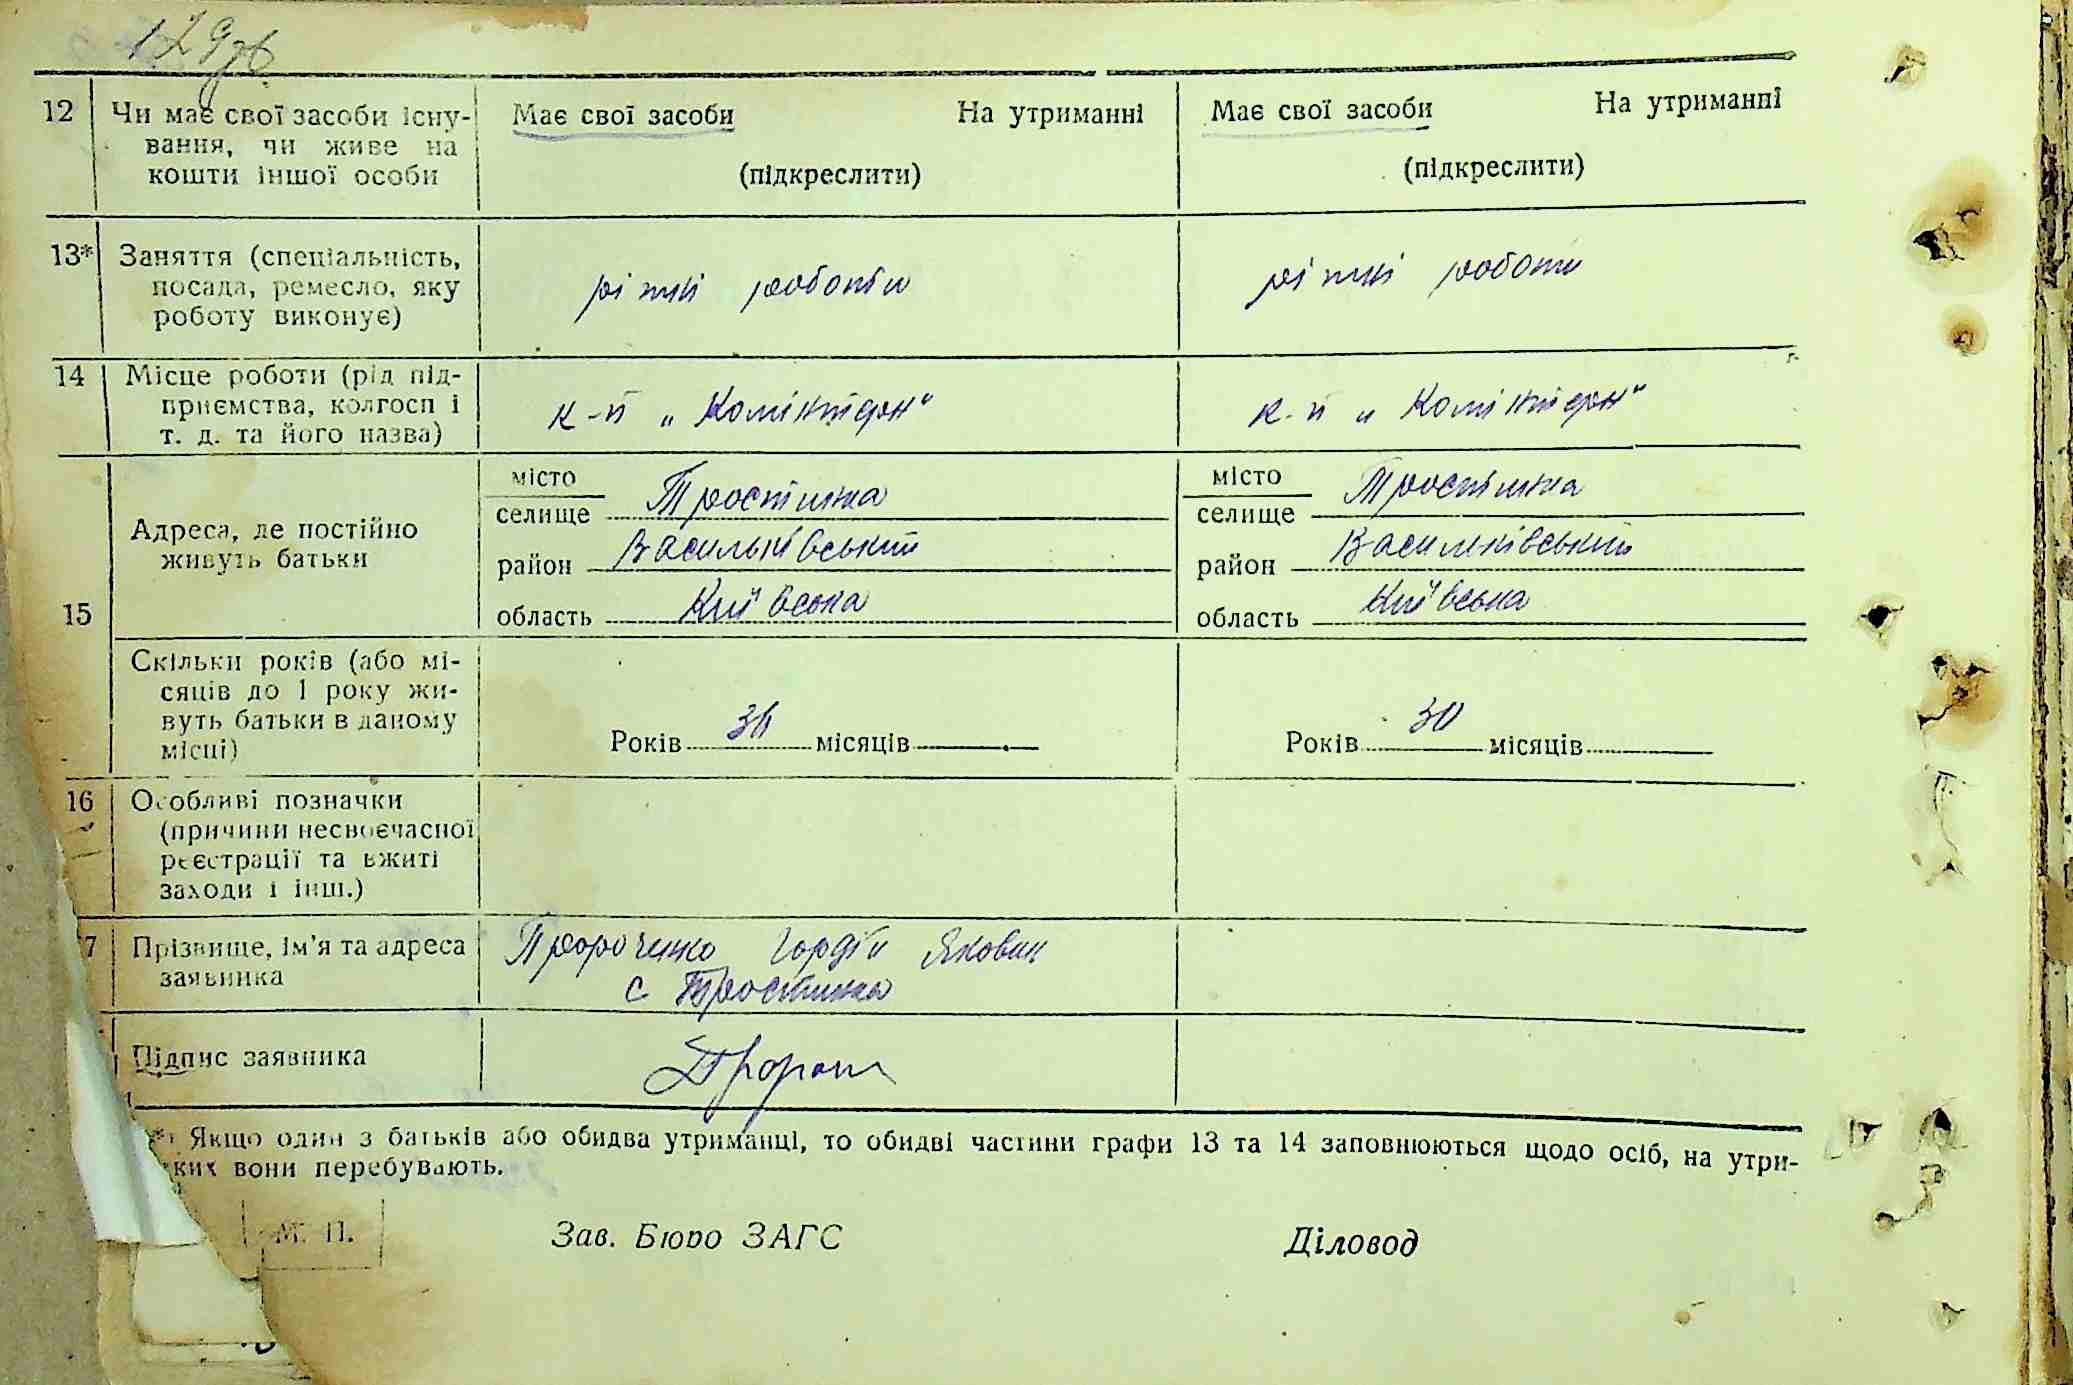 129зв
12 Чи має свої засоби існу- Має свої засоби На утриманні Має свої засоби На утриманні
вання, чи живе на
кошти іншої особи (підкреслити) (підкреслити)
13* Заняття (спеціальність,
посада, ремесло, яку різні роботи різні роботи
роботу виконує)
14 Місце роботи (рід під-
приємства, колгосп і к-п „Комінтерн" к-п „Комінтерн"
т. д. та його назва)
15 Адреса, де постійно
живуть батьки
місто
селище Тростинка
район Васильківський
область Київська
місто
селище Тростинка
район Васильківський
область Київська
Скільки років (або мі-
сяців до 1 року жи-
вуть батьки в даному
місці)
Років місяців Років 30 місяців
16 Особливі позначки
(причини несвоєчасної
реєстрації та вжиті
заходи і інш.)
7 Прізвище, ім'я та адреса Пророченко Гордій Якович
заявника с Тростинка
Підпис заявника
*) Якщо один з батьків або обидва утриманці, то обидві частини графи 13 та 14 заповнюються щодо осіб, на утри-
ких вони перебувають.
М. П. Зав. Бюро ЗАГС Діловод